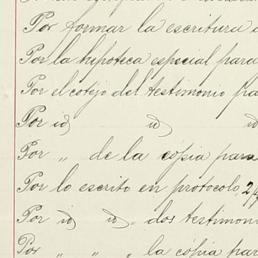 Por formar la escritura
Por la hipoteca especial para
Por el cotejo del testimonio pa
Por id id id
Por " de la copia para
Por lo escrito en protocolo, 2
Por id id, dos testimoni
Por " " " la copia par